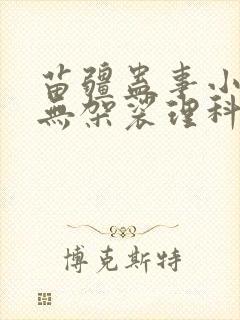 苗疆蛊事小
無架裟理科
博克斯特